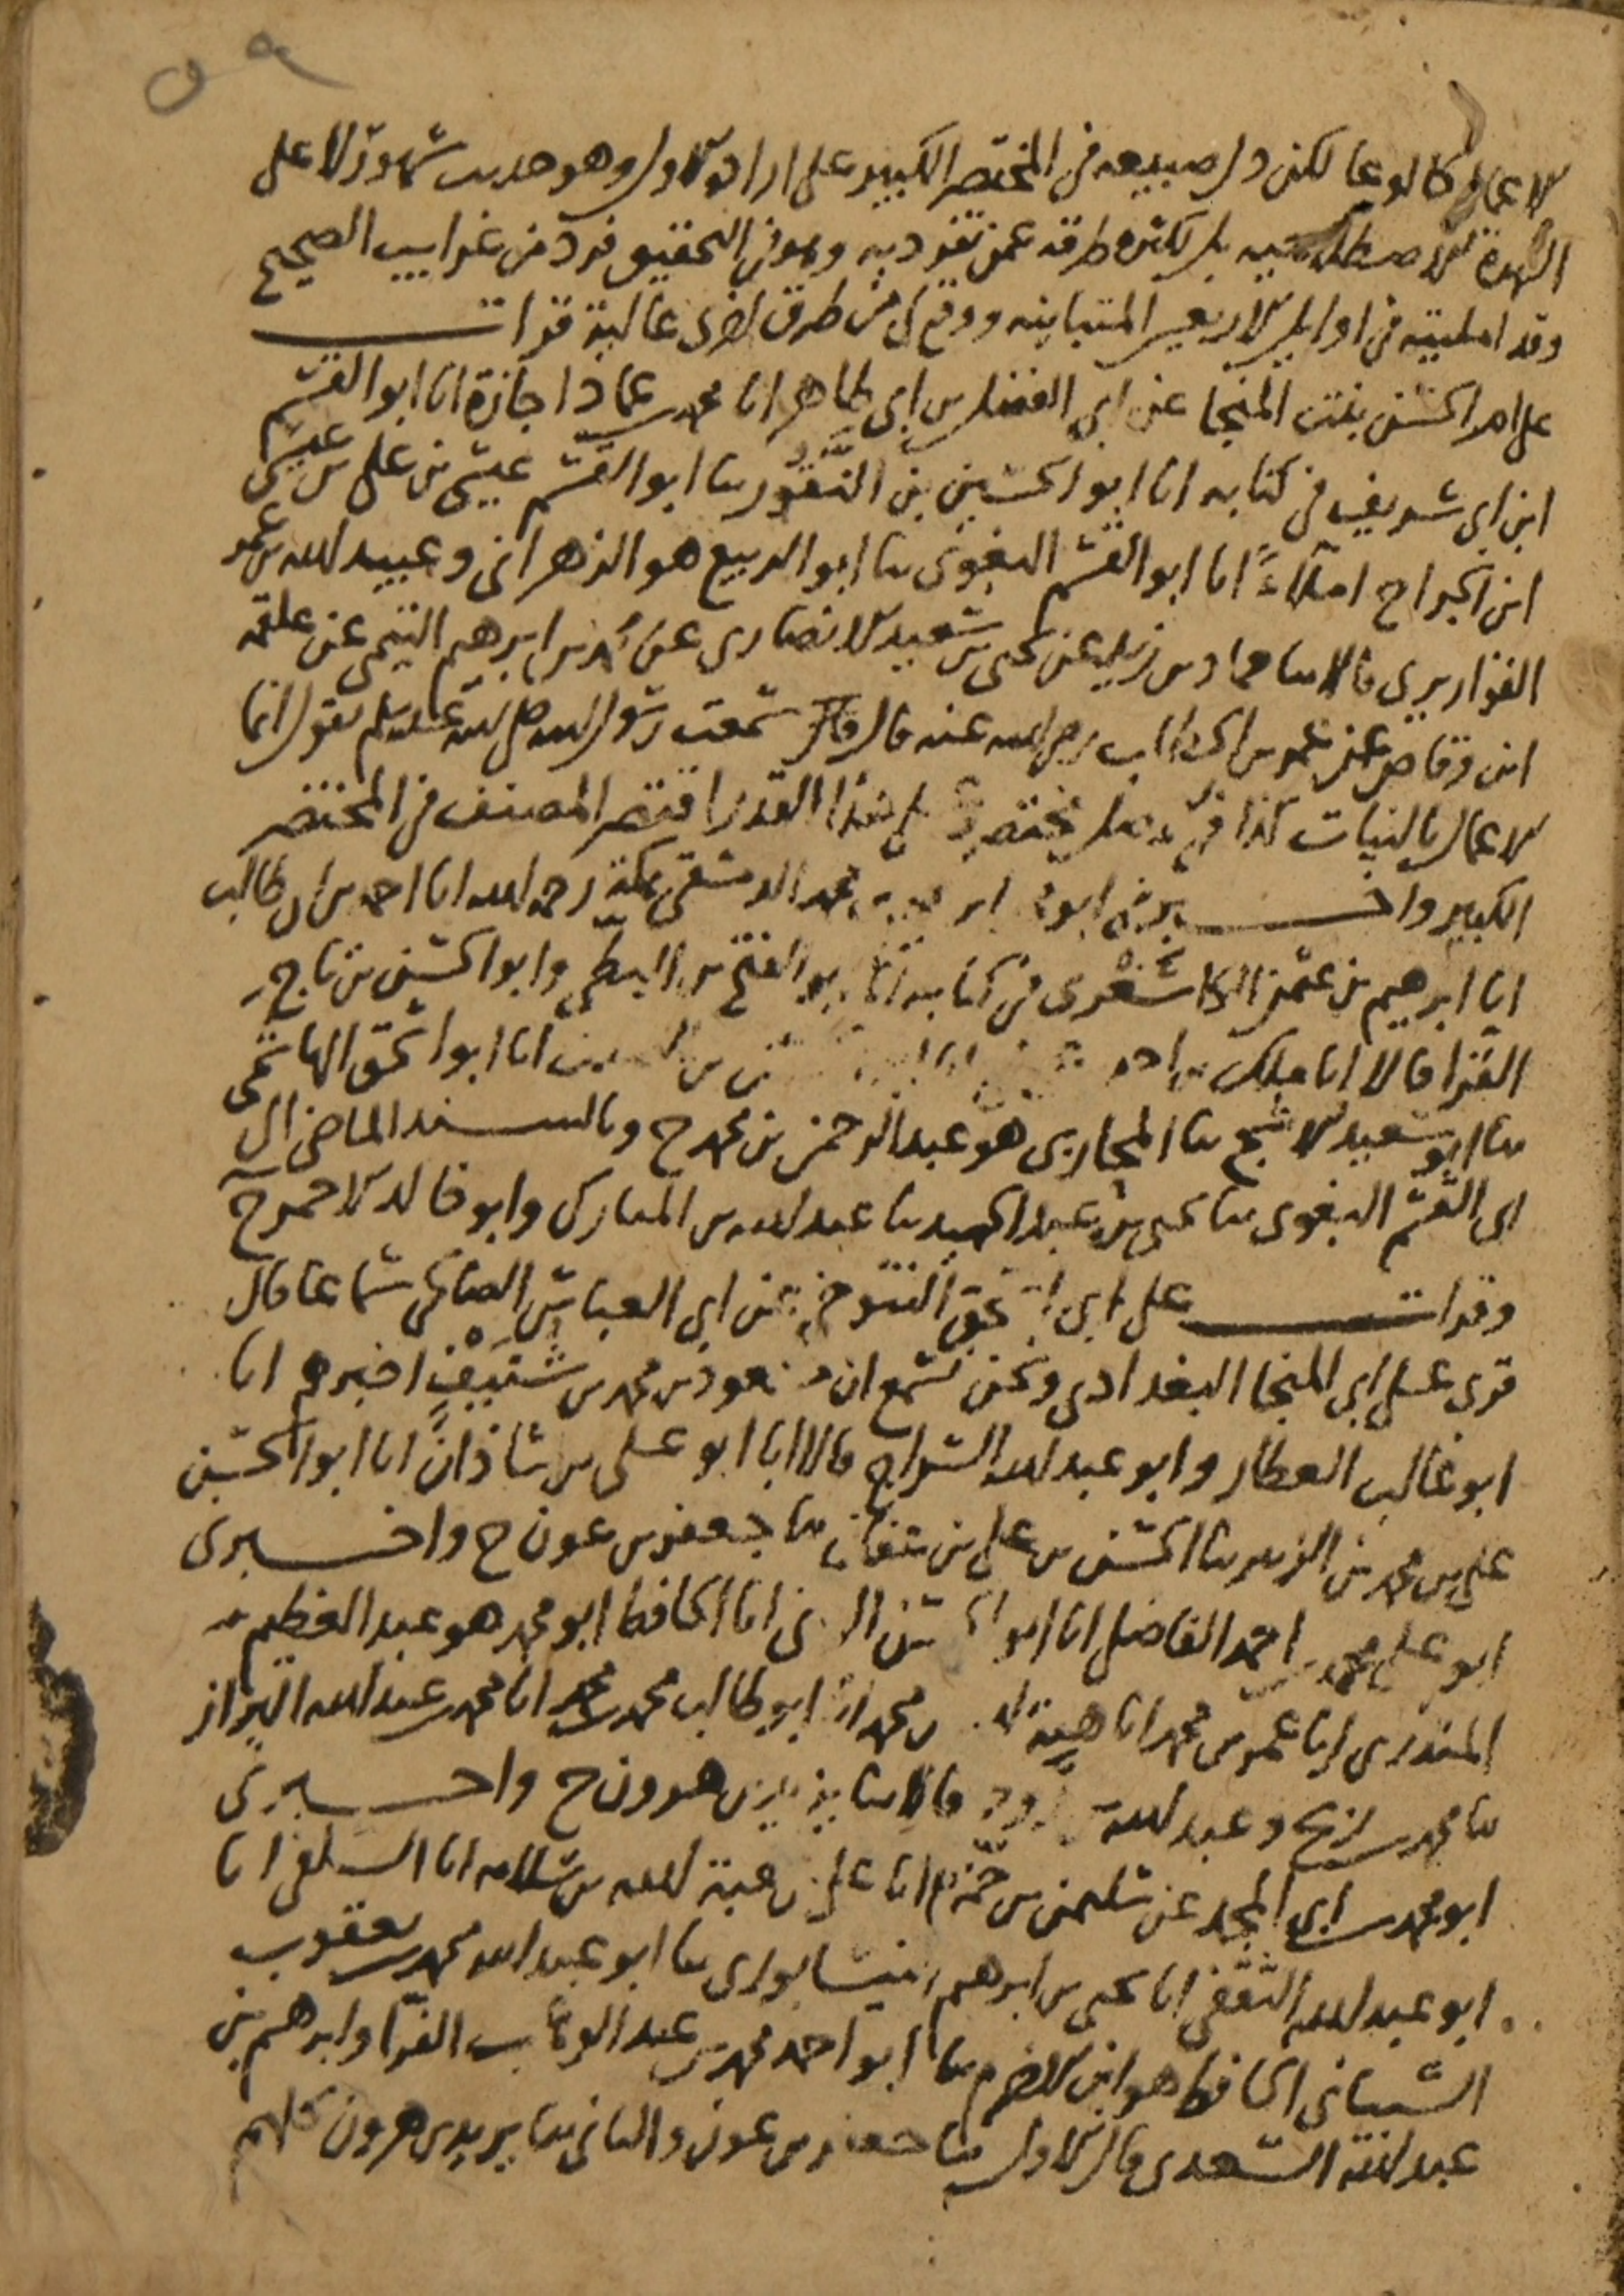 ٥٩
الاعمال كالوعا لكن دل صنيعه في المختصر الكبير على ارادة الاول وهو حديث مشهور لا على
الشهرة الاصطلاحية بل لكثرة طرقه عمن تفرد به وهو في التحقيق فرد من غرايب الصحيح
وقد امليته في اوايل الاربعين المتباينه ووقع لي من طرق اخرى عالية قرات
على ام الحسن بنت المنجا عن ابي الفضل بن ابي طاهر انا محمد بن عماد اجازة انا ابو القسم
ابن ابي شريف في كتابه انا ابو الحسين بن النقور ثنا ابو القسم عيسى بن علي بن عيسى
ابن الجراح املاءً انا ابو القسم البغوي ثنا ابو الربيع هو الزهراني وعبيد الله بن عمر
القواريري قالا ثنا حماد بن زيد عن يحيى بن سعيد الانصاري عن محمد بن ابرهيم التيمي عن علقمه
ابن وقاص عن عمر بن الخطاب رضي الله عنه قال قال سمعت رسول الله صلى الله عليه وسلم يقول انما
الاعمال بالنيات كذا في مختصر على هذا القدر اقتصر المصنف في المختصر
الكبير واخبرني ابو محمد الدمشقي بمكة رحمه الله انا احمد بن ابي طالب
انا ابرهيم بن عثمن الكاشغري في كتابه انا ابو الفتح بن البطي وابو الحسن بن تاج
القرا قالا انا ملك بن احمد انا ابو اسحق الهاشمي
ثنا ابو سعيد الاشج ثنا المحاربي هو عبد الرحمن بن محمد ح وبالسند الماضي الى
ابي القسم البغوي ثنا يحيى بن عبد الحميد ثنا عبد الله بن المبارك وابو خالد الاحمر ح
وقرات على ابي اسحق التنوخي عن ابي العباس الصالحي سماعا قال
قرى على ابي المنجا البغدادي ونحن نسمع ان مسعود بن محمد بن شنيف اخبرهم انا
ابو غالب العطار وابو عبد الله السراج قالا انا ابو علي بن شاذان انا ابو الحسن
علي بن محمد بن الزبير ثنا الحسن بن علي بن عفان ثنا جعفر بن عون ح واخبرني
ابو علي محمد بن احمد الفاضل انا ابو الحسن انا الحافظ ابو محمد هو عبد العظيم
المنذري انا عمر بن محمد انا هبة الله بن محمد انا ابو طالب محمد بن محمد انا محمد بن عبد الله البزاز
ثنا محمد بن ربح وعبد الله بن روح قالا ثنا يزيد بن هرون ح واخبرني
ابو محمد بن ابي المجد عن سليمن بن حمزة انا علي بن هبة الله بن سلامه انا السلفي انا
ابو عبد الله الثقفي انا يحيى بن ابرهيم النيسابوري ثنا ابو عبد الله محمد بن يعقوب
الشيباني الحافظ هو ابن الاخرم ثنا ابو احمد محمد بن عبد الوهاب الفرا وابرهيم بن
عبد الله السعدي قال الاول ثنا جعفر بن عون والثاني ثنا يزيد بن هرون كلاهم